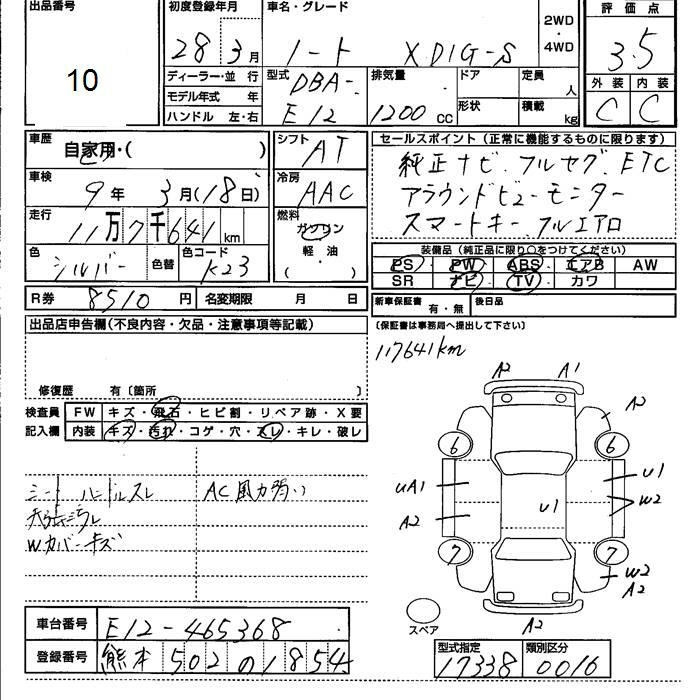 出品番号
10
初度登録年月
28年 3月
車名・グレード
ノート X DIG-S
2WD・4WD
評価点
3.5
外装 内装
C C
ディーラー・並行
モデル年式 年
ハンドル 左・右
型式
DBA-
E12
排気量
1200 cc
ドア
形状
定員 人
積載 kg
車歴
自家用・( )
車検
9年 3月(18日)
走行
11万7千641 km
色
シルバー
色替
色コード
K23
シフト
AT
冷房
AAC
燃料
ガソリン
軽・油
( ・ )
セールスポイント (正常に機能するものに限ります)
純正ナビ、フルセグ、ETC
アラウンドビューモニター
スマートキー、フルエアロ
装備品 (純正品に限り○をつけてください)
PS・PW・ABS・エアB AW
SR ナビ・TV・カワ
R券 8510円
名変期限 月 日
新車保証書 有・無
後日品
出品店申告欄(不良内容・欠品・注意事項等記載)
(保証書は事務局へ提出して下さい)
117641km
修復歴 有〔箇所 〕
検査員 FW キズ・飛石・ヒビ割・リペア跡・X要
記入欄 内装 キズ・汚れ・コゲ・穴・スレ・キレ・破レ
シート ハンドルスレ
AC風力弱い
Wカバーキズ
A2 A1
A2
6 6
uA1 u1
A2 u1 w2
7 7
w2
A2
スペア
A2
車台番号 E12-465368
登録番号 熊本 502 の 1854
型式指定 17338
類別区分 0016